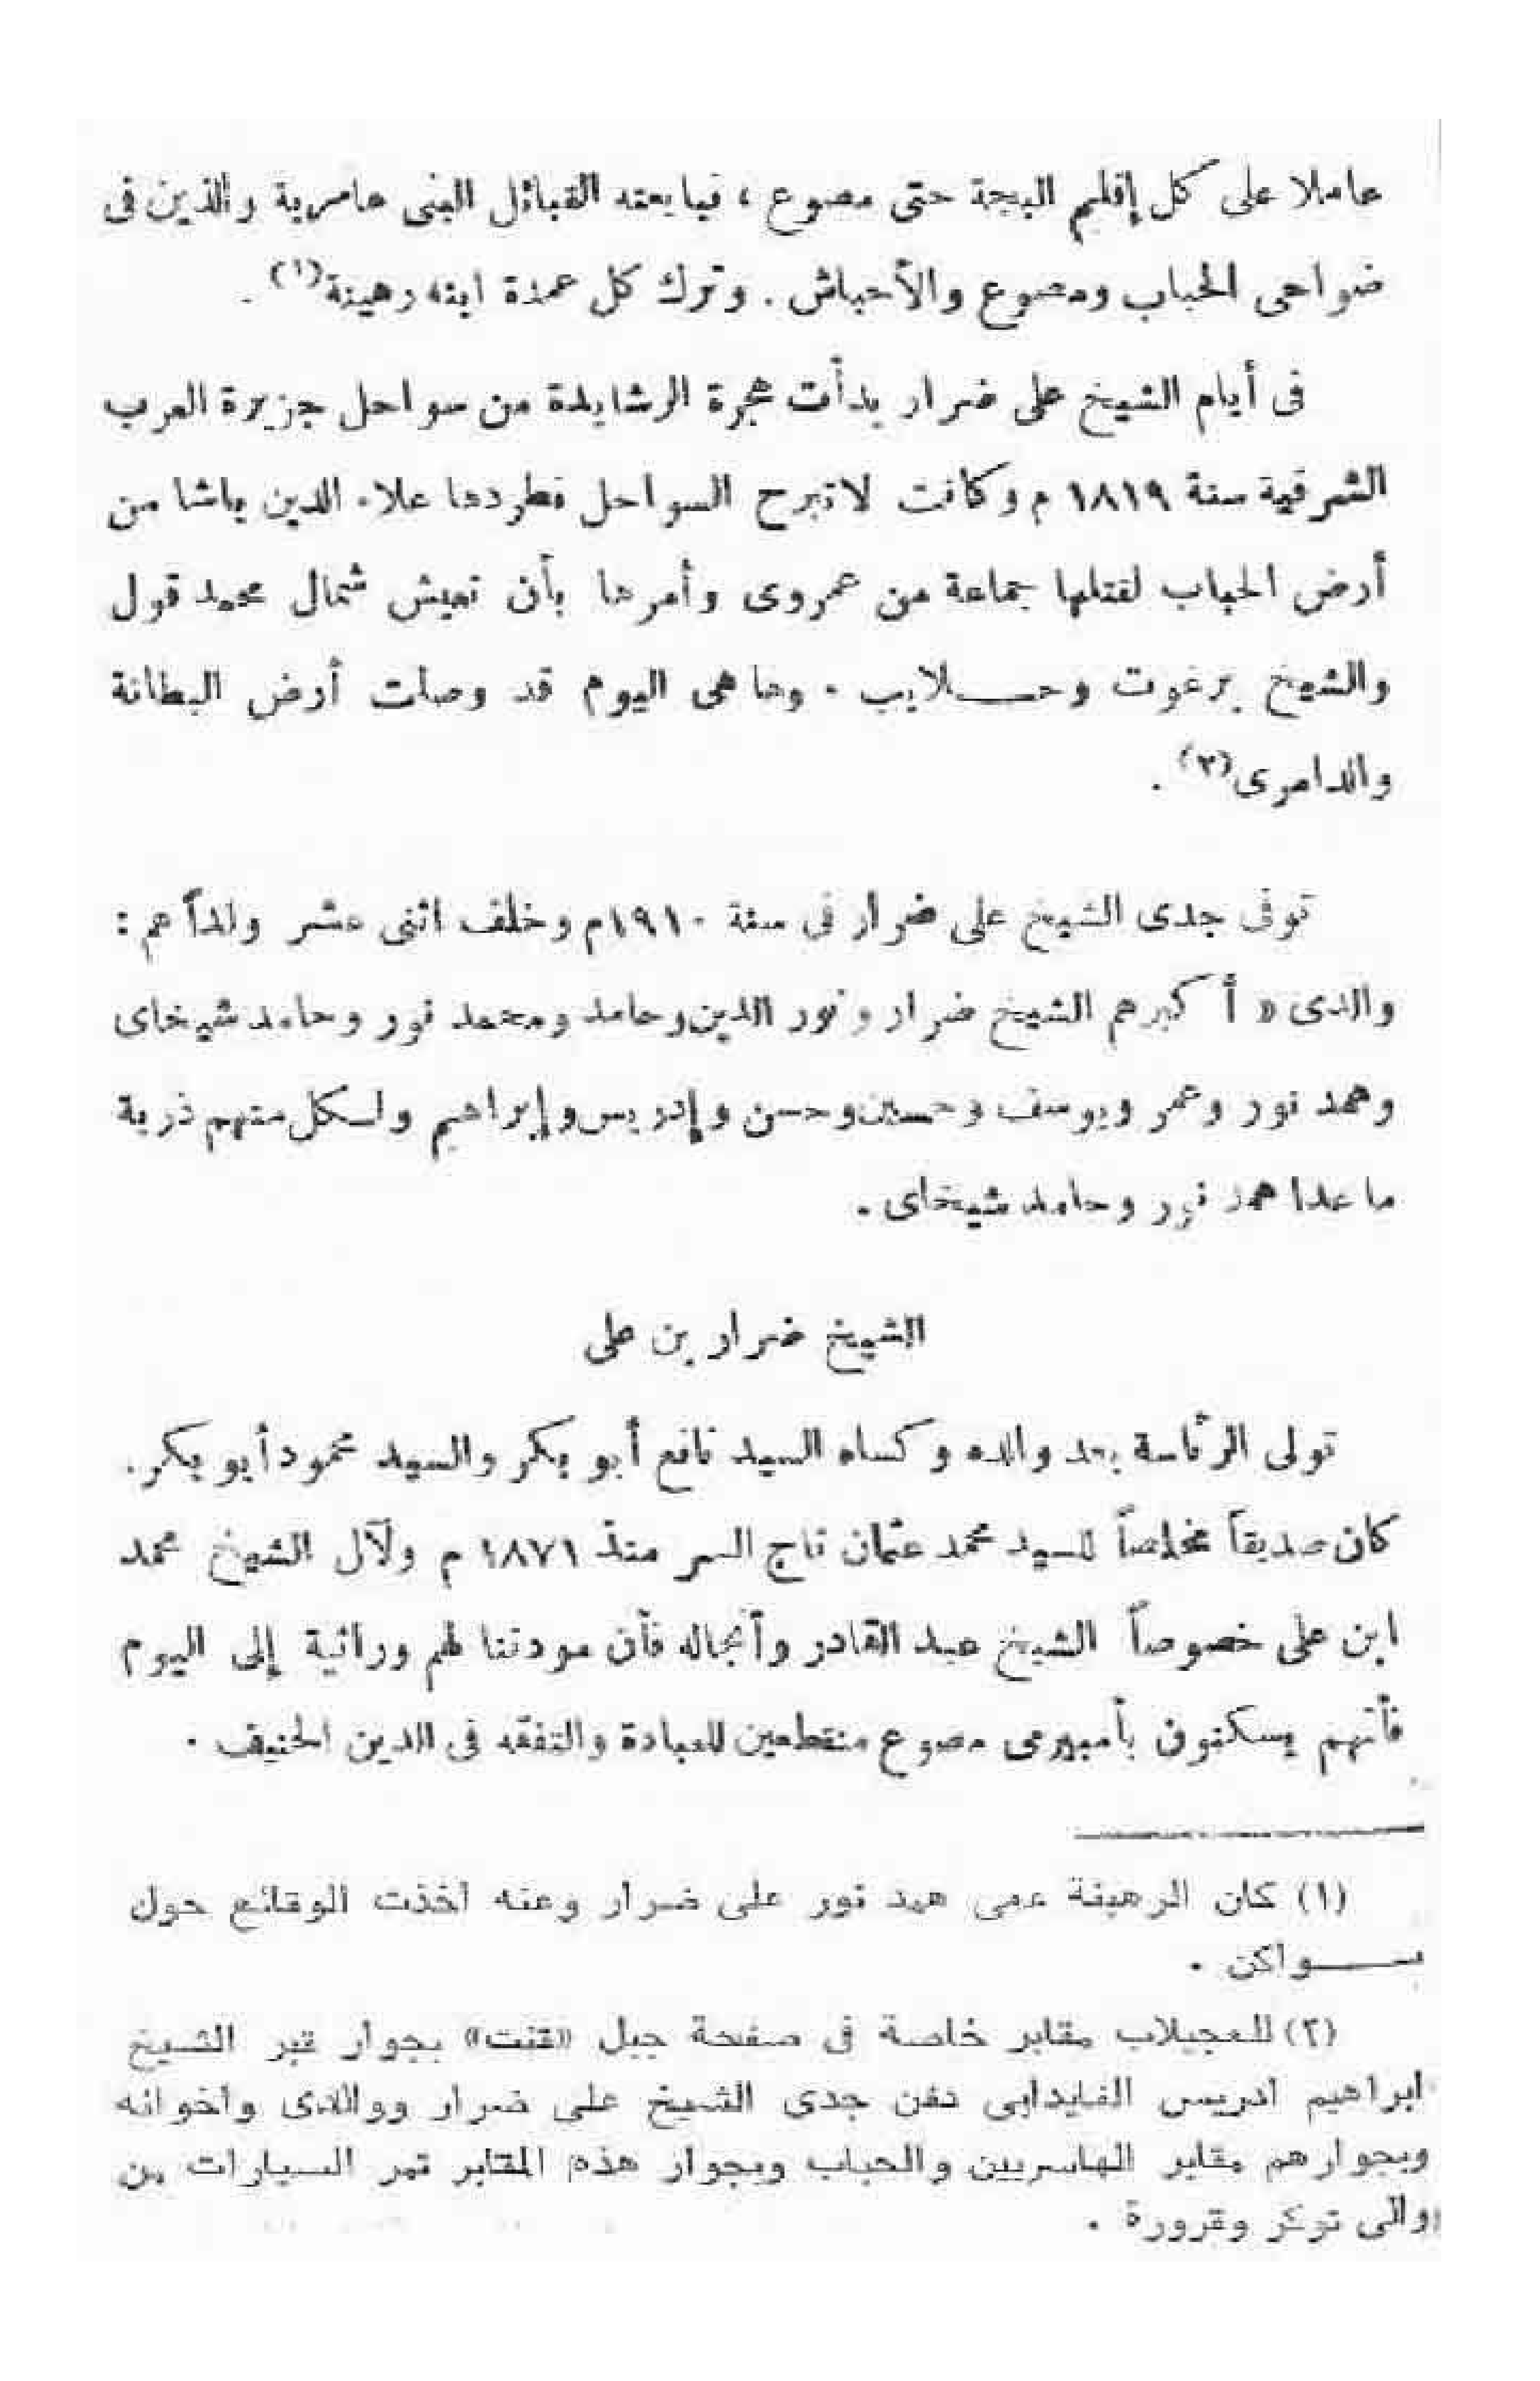 عاملا على كل إقليم البجة حتى مصوع ، فبايعته القبائل البنى عامرية والذين فى
ضواحى الحباب ومصوع والأحباش . وترك كل عمدة ابنه رهينة(١) .
فى أيام الشيخ على ضرار بدأت هجرة الرشايدة من سواحل جزيرة العرب
الشرقية سنة ١٨١٩ م وكانت لا تبرح السواحل فطردها علاء الدين باشا من
أرض الحباب لقتلها جماعة من عمروى وأمرها بأن تعيش شمال محمد قول
والشيخ برغوت وحـــلايب . وها هى اليوم قد وصلت أرض البطانة
والدامرى(٢) .
توفى جدى الشيخ على ضرار فى سنة ١٩١٠م وخلف اثنى عشر ولداً هم :
والدى « أكبرهم الشيخ ضرار ونور الدين وحامد ومحمد نور وحامد شيخاى
وهمد نور وعمر ويوسف وحسين وحسن وإدريس وإبراهيم ولكل منهم ذرية
ما عدا همد نور وحامد شيخاى .
الشيخ ضرار بن على
تولى الرئاسة بعد والده وكساه السيد نافع أبو بكر والسيد محمود أبو بكر .
كان صديقاً مخلصاً للسيد محمد عثمان تاج السر منذ ١٨٧١ م ولآل الشيخ محمد
ابن على خصوصاً الشيخ عبد القادر وأنجاله فأن مودتنا لهم وراثية إلى اليوم
فأنهم يسكنون بأمبيرمى مصوع منقطعين للعبادة والتفقه فى الدين الحنيف .
(١) كان الرهينة عمى همد نور على ضرار وعنه أخذت الوقائع حول
ســـواكن .
(٢) للعجيلاب مقابر خاصة فى صفحة جبل «قنت» بجوار قبر الشيخ
ابراهيم ادريس الفايدابى دفن جدى الشيخ على ضرار ووالدى واخوانه
وبجوارهم مقابر الهاسريين والحباب وبجوار هذه المقابر تمر السيارات من
والى توكر وقرورة .